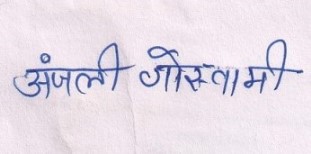 अंजली गोस्वामी